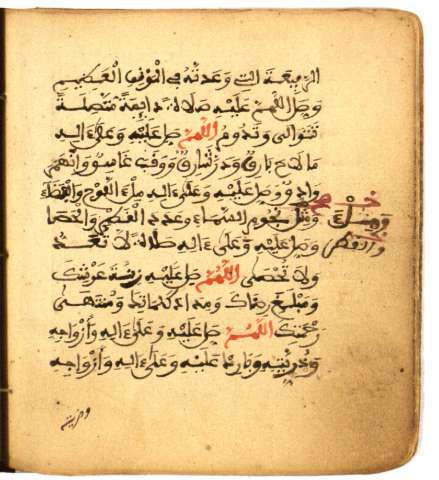 الرفيعة التي وعدته في الموقف العظيم
وصل اللهم عليه صلاة دائمة متصلة
تتوالى وتدوم اللهم صل عليه وعلى ءاله
ما لاح بارق وذر شارق ووقب غاسق وانهمر
وادق وصل عليه وعلى ءاله ملء اللوح والفضاء
ومثل نجوم السماء وعدد القطر والحصا
وصل عليه وعلى ءاله صلاة لا تعد
ولا تحصى اللهم صل عليه زنة عرشك
ومبلغ رضاك ومداد كلماتك ومنتهى
رحمتك اللهم صل عليه وعلى ءاله وأزواجه
وذريته وبارك عليه وعلى ءاله وأزواجه
وذريته